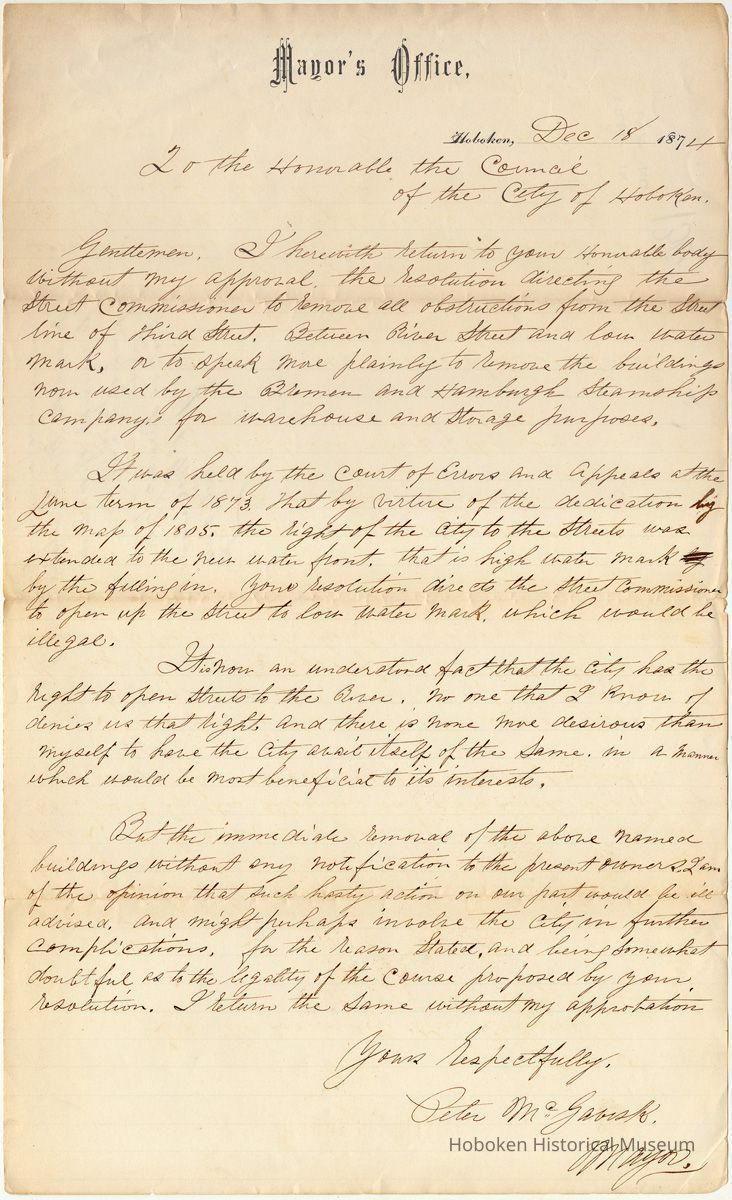 Mayor's Office,
Hoboken, Dec 18 1874
To the Honorable the Council
of the City of Hoboken.
Gentlemen. I herewith return to your Honorable body
without my approval, the resolution directing the
Street Commissioner to remove all obstructions from the Street
line of third Street. Between River Street and low water
mark, or to speak more plainly to remove the buildings
now used by the Bremen and Hamburgh Steamship
Companys for warehouse and storage purposes.
It was held by the Court of Errors and Appeals at the
June term of 1873. that by virtue of the dedication by
the map of 1805. the right of the City to the Streets was
extended to the new water front. that is high water mark
by the filling in. Your resolution directs the street Commissioner
to open up the street to low water mark, which would be
illegal.
It is now an understood fact that the City has the
right to open streets to the River. no one that I know of
denies us that right, and there is none more desirous than
myself to have the City avail itself of the same. in a manner
which would be most beneficial to its interests.
But the immediate removal of the above named
buildings without any notification to the present owners, I am
of the opinion that such hasty action on our part would be ill
advised. and might perhaps involve the City in further
complications. for the reason stated, and being somewhat
doubtful as to the legality of the course proposed by your
resolution. I return the same without my approbation
Yours Respectfully.
Peter McGavisk.
Mayor.
Hoboken Historical Museum